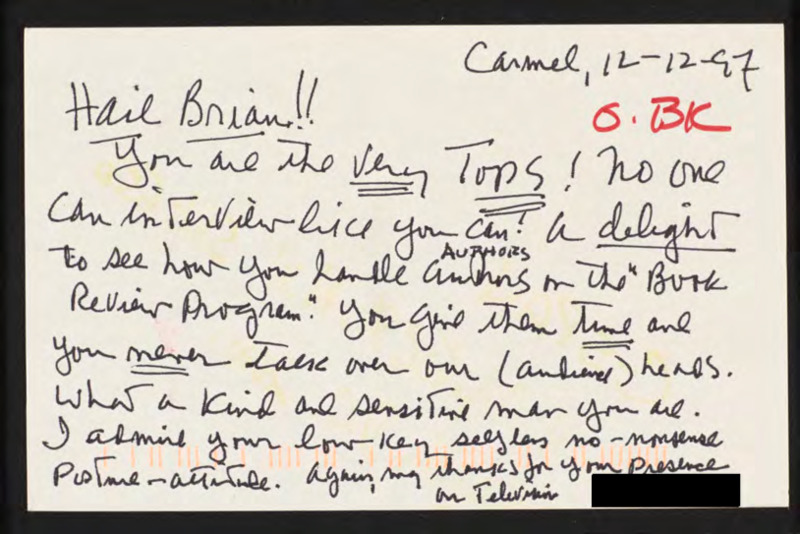 Carmel, 12-12-97
O. BK
Hail Brian!!
You are the very Tops! No one
can interview like you can! A delight
AUTHORS
to see how you handle authors on the "Book
Review Program." You give them time and
you never talk over our (audience) heads.
What a kind and sensitive man you are.
I admire your low-key selfless no-nonsense
posture-attitude. Again, my thanks for your presence
on Television